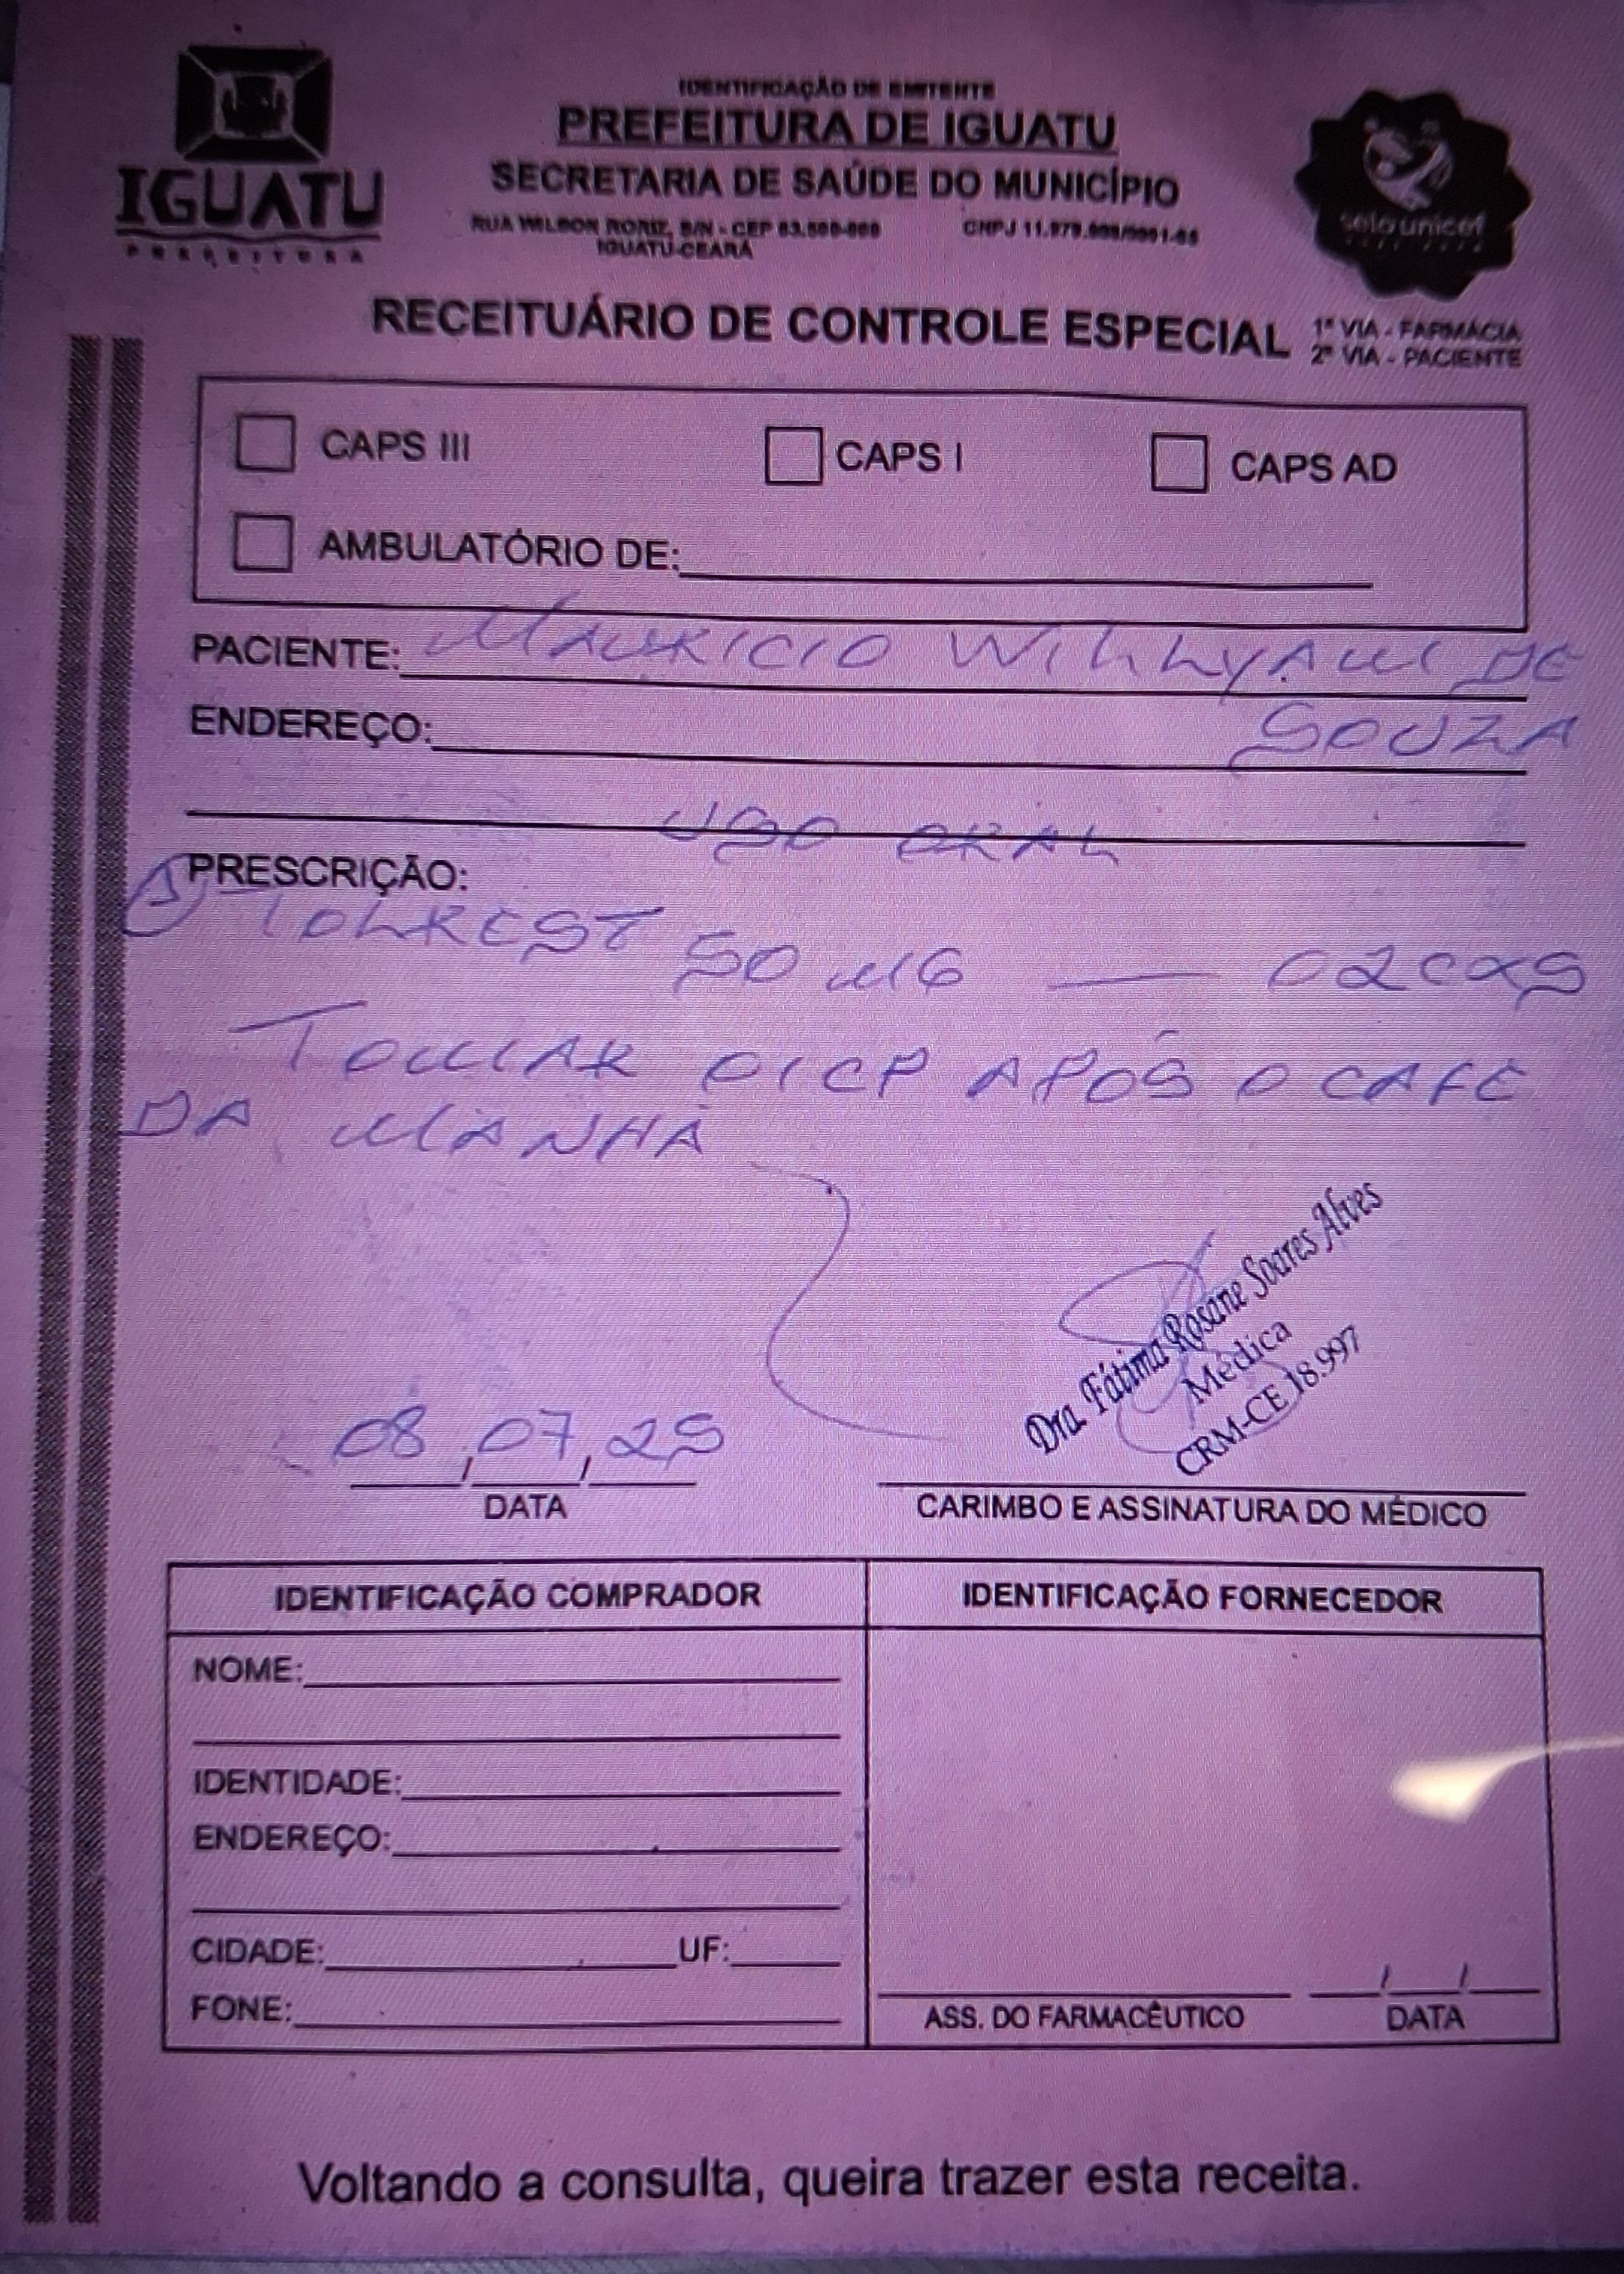 IGUATU
PREFEITURA
IDENTIFICAÇÃO DE EMITENTE
PREFEITURA DE IGUATU
SECRETARIA DE SAÚDE DO MUNICÍPIO
RUA WILSON RORIZ, S/N - CEP 63.500-000 CNPJ
IGUATU-CEARÁ
selo unicef
RECEITUÁRIO DE CONTROLE ESPECIAL
1ª VIA - FARMÁCIA
2ª VIA - PACIENTE
CAPS III CAPS I CAPS AD
AMBULATÓRIO DE:
PACIENTE: MAURICIO WILLYAM DE
ENDEREÇO: SOUZA
USO ORAL
PRESCRIÇÃO:
1 TOLREST 50 MG — 02 CXS
TOMAR 01 CP APÓS O CAFÉ
DA MANHÃ
Dra. Fátima Rosane Soares Alves
Médica
CRM-CE 18.997
08/07/25
DATA
CARIMBO E ASSINATURA DO MÉDICO
IDENTIFICAÇÃO COMPRADOR
NOME:
IDENTIDADE:
ENDEREÇO:
CIDADE: UF:
FONE:
IDENTIFICAÇÃO FORNECEDOR
ASS. DO FARMACÊUTICO
/ /
DATA
Voltando a consulta, queira trazer esta receita.